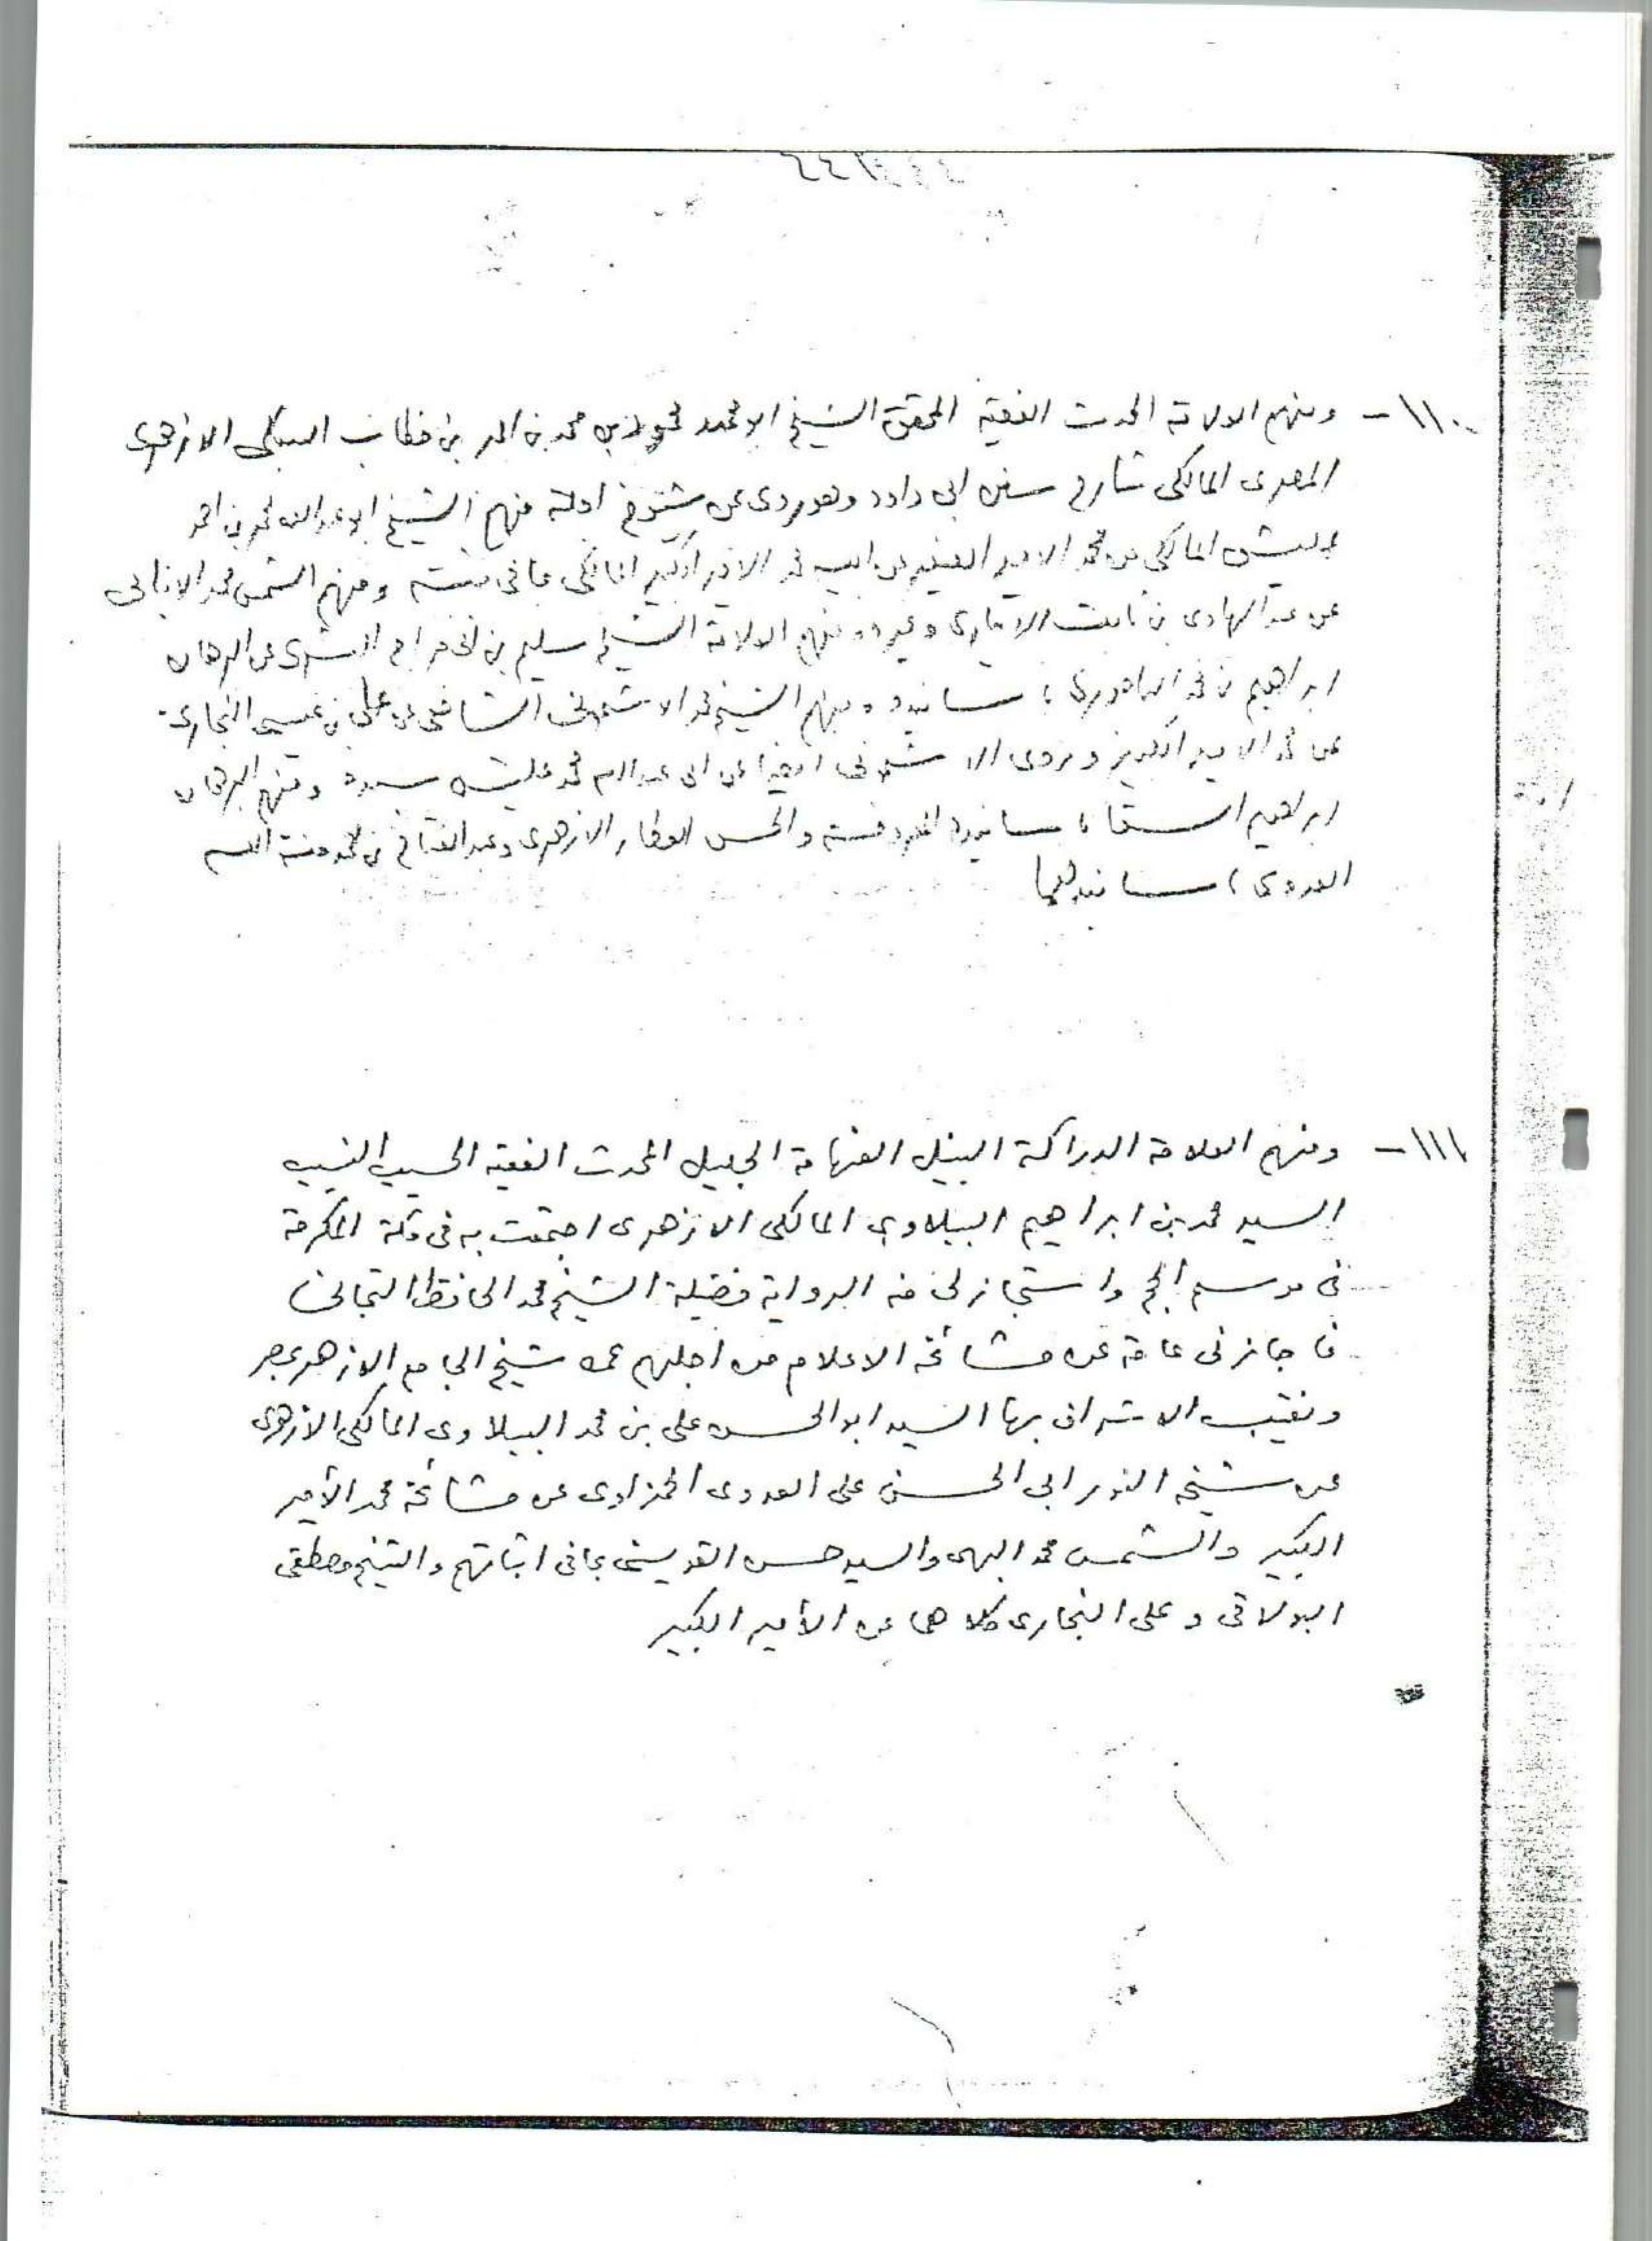 ١١٠- ومنهم العلامة المحدث الفقيه المحقق الشيخ ابو محمد محمود بن محمد بن احمد بن خطاب السبكى الازهرى
المصرى المالكى شارح سنن ابى داود وهو يروى عن شيوخ اجلة منهم الشيخ ابو عبد الله محمد بن احمد
عليش المالكى عن محمد الامير الصغير عن ابيه محمد الامير الكبير المالكى بما فى ثبته ومنهم الشمس محمد الانبابى
عن عبد الهادى بن الابيارى وغيره ومنهم العلامة الشيخ سليم بن ابى فراج البشرى عن البرهان
ابراهيم بن محمد الباجورى باسانيده ومنهم الشيخ محمد الاشمونى الشافعى عن على بن عيسى النجارى
عن محمد الامير الكبير ويروى الاشمونى ايضا عن ابى عبد الله محمد عليش بسنده ومنهم البرهان
ابراهيم السقا باسانيده والحسن العطار الازهرى وعبد الفتاح بن محمد
العدوى باسانيدهما
١١١- ومنهم العلامة الدراكة النبيل الفهامة الجليل المحدث الفقيه الحسيب النسيب
السيد محمد بن ابراهيم الببلاوى المالكى الازهرى اجتمعت به فى مكة المكرمة
فى موسم الحج واستجاز لى منه الرواية فضيلة الشيخ محمد الحافظ التجانى
فاجازنى عامة عن مشائخه الاعلام من اجلهم عمه شيخ الجامع الازهر بمصر
ونقيب الاشراف بها السيد ابو الحسن على بن محمد الببلاوى المالكى الازهرى
عن شيخه النور ابى الحسن على العدوى الحمزاوى عن مشائخه محمد الأمير
الكبير والشمس محمد البهى والسيد حسن القويسنى بما فى اثباتهم والشيخ مصطفى
البولاقى وعلى النجارى كلاهما عن الأمير الكبير